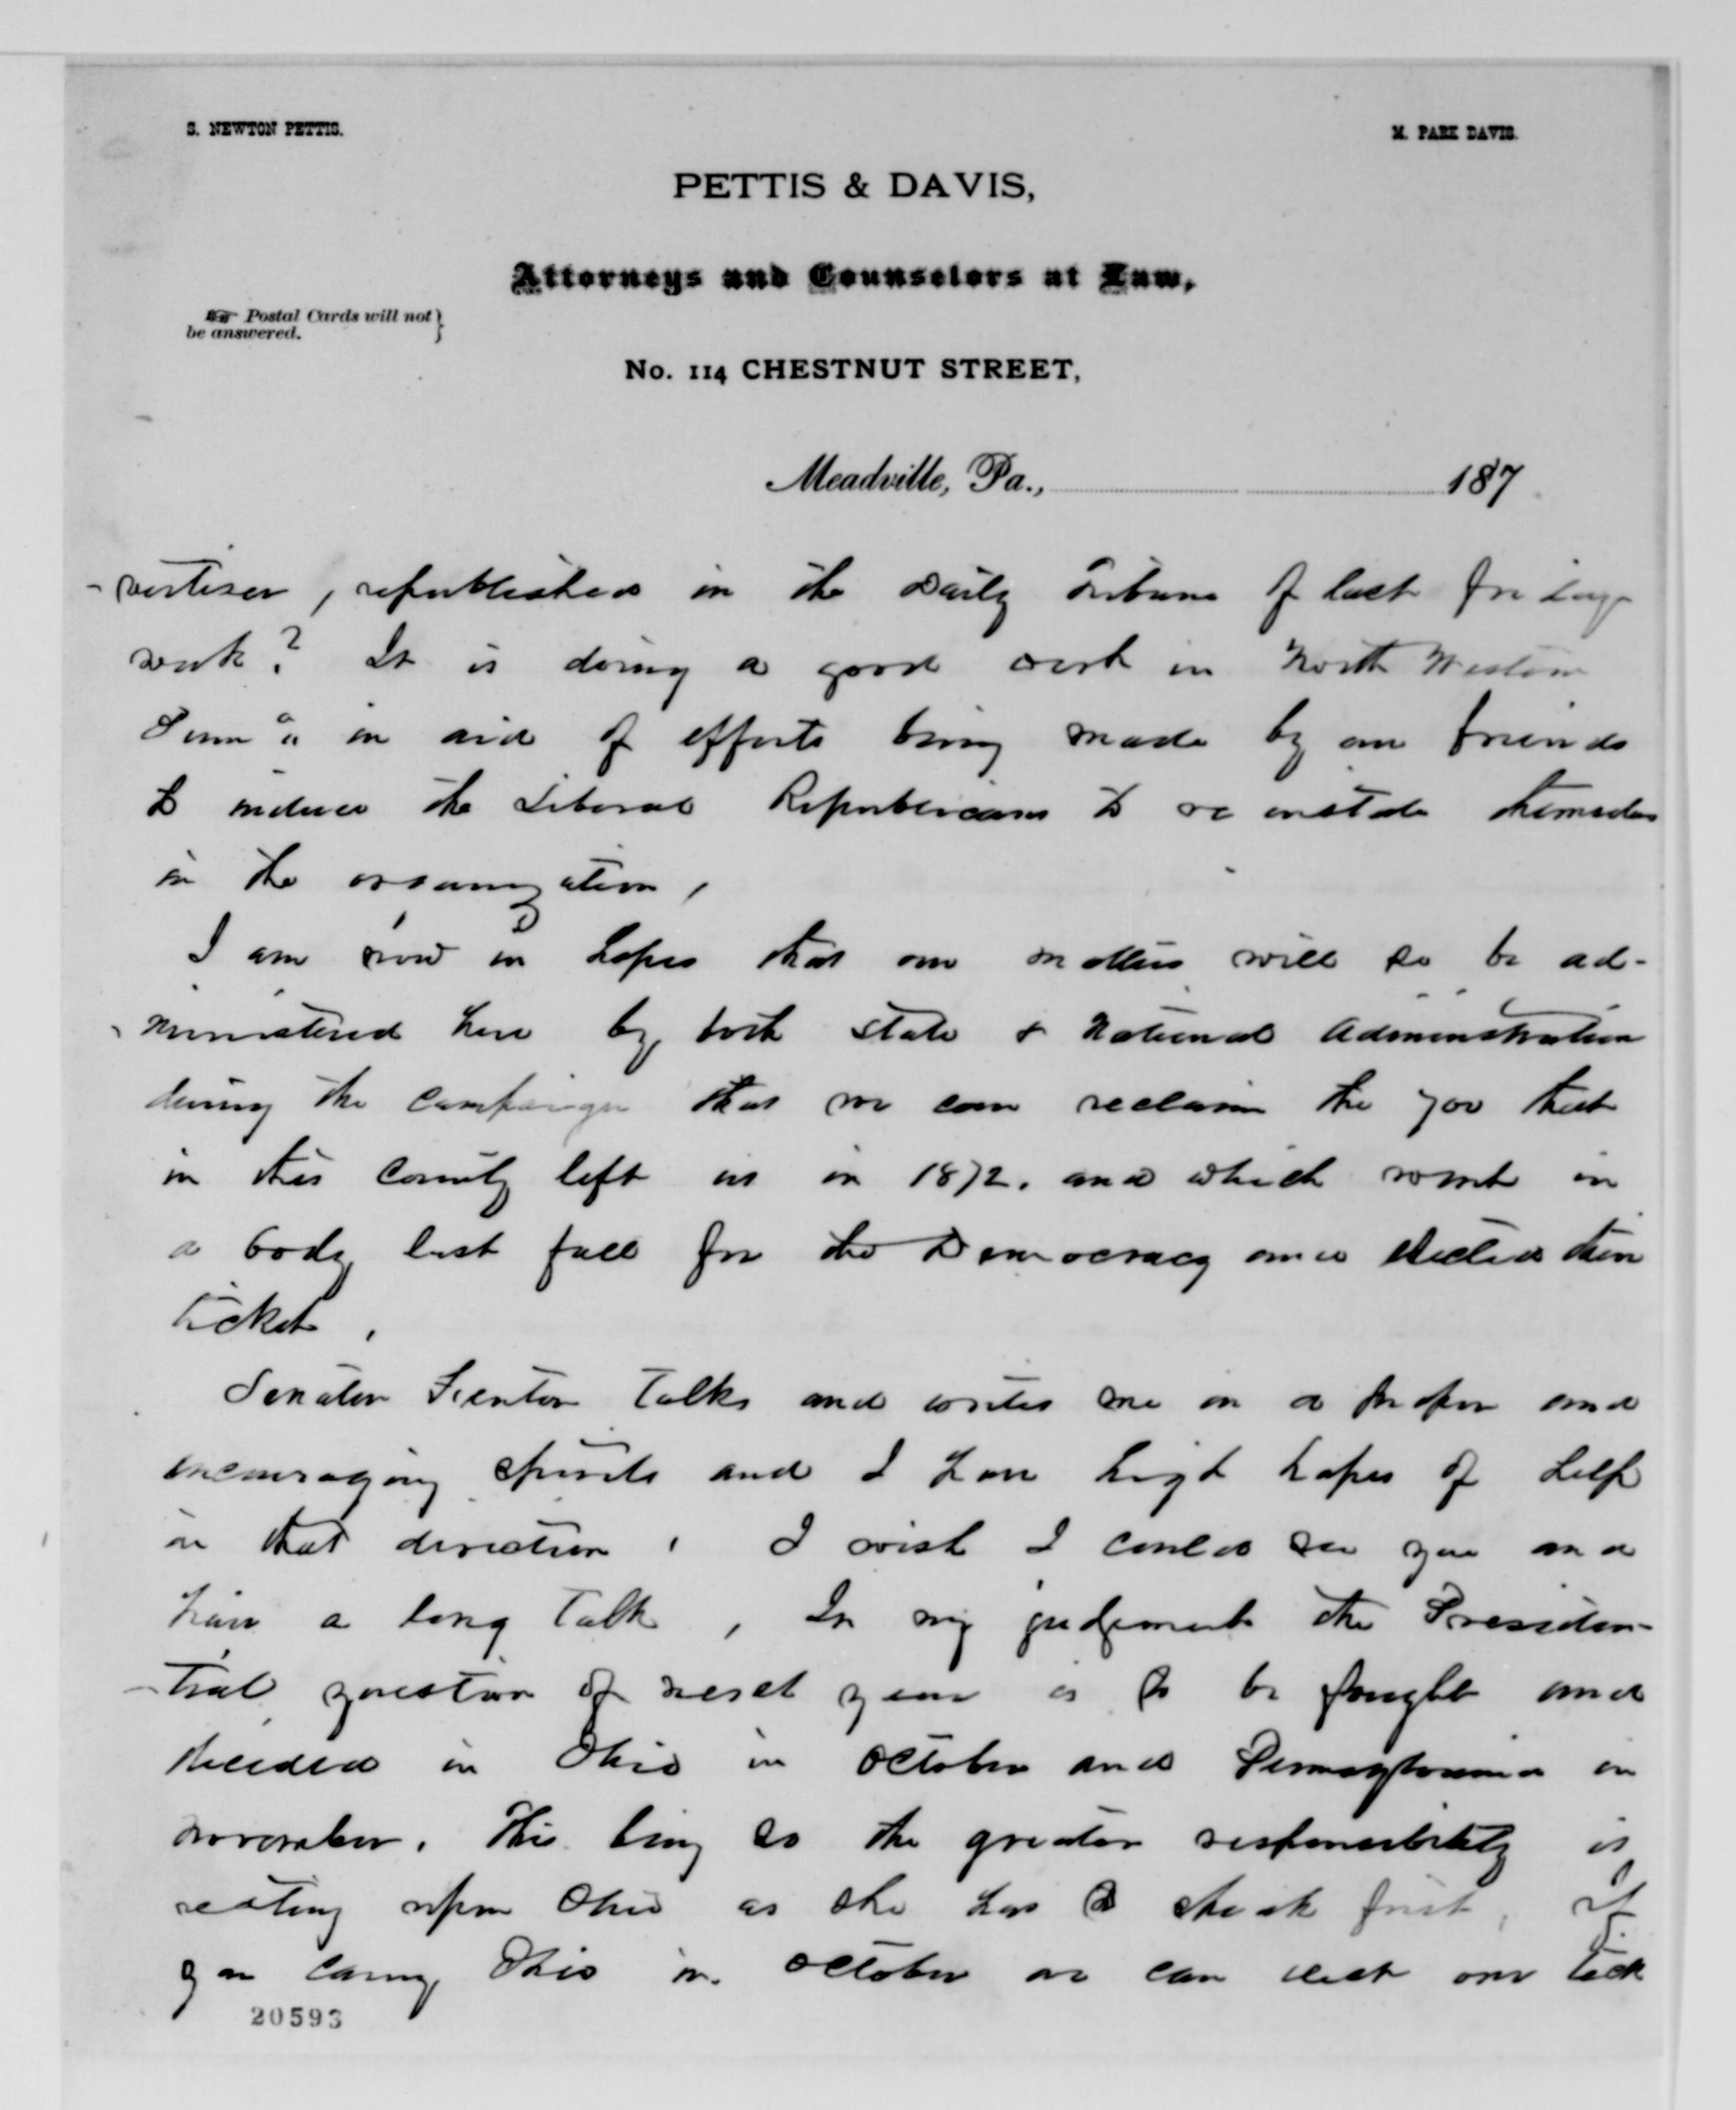 S. NEWTON PETTIS.
M. PARK DAVIS.
PETTIS & DAVIS,
Attorneys and Counselors at Law,
☞ Postal Cards will not }
be answered.
No. 114 CHESTNUT STREET,
Meadville, Pa., 187
-vertiser, republished in the Daily Tribune of last friday
week? It is doing a good work in North Western
Penn a in aid of efforts being made by our friends
to induce the Liberal Republicans to re instate themselves
in the organization,
I am now in hopes that our matters will so be ad-
ministered here by both State & National Administration
during the campaign that we can reclaim the 700 that
in this County left us in 1872. and which went in
a body last fall for the Democracy and elected their
ticket.
Senator Fenton talks and writes me in a proper and
encouraging spirits and I have high hopes of help
in that direction. I wish I could see you and
have a long talk, In my judgement the Presiden-
-tial question of next year is to be fought and
decided in Ohio in October and Pennsylvania in
november. This being so the greater responsibility is
resting upon Ohio as she has to speak first, if
you carry Ohio in October we can elect our tick
20593